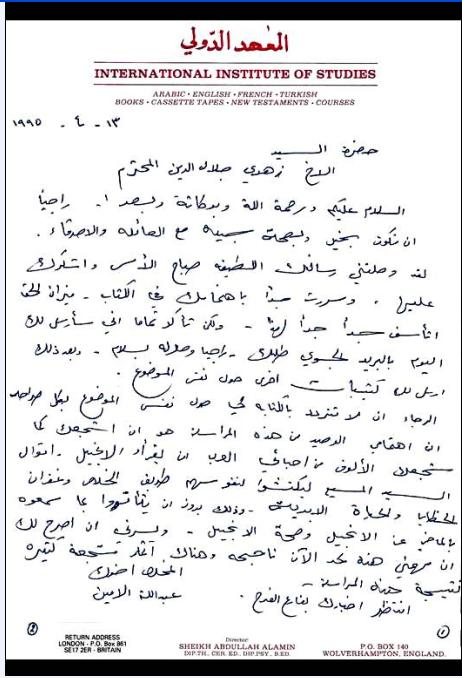 المعهد الدّولي
INTERNATIONAL INSTITUTE OF STUDIES
ARABIC • ENGLISH • FRENCH • TURKISH
BOOKS • CASSETTE TAPES • NEW TESTAMENTS • COURSES
١٣ - ٤ - ١٩٩٥
حضرة السيد
الاخ زهدي جلال الدين المحترم
السلام عليكم ورحمة الله وبركاته وبعد. راجياً
ان تكون بخير وبصحة جيدة مع العائلة والاصدقاء.
لقد وصلتني رسالتك اللطيفة صباح الأمس واشكرك
عليها، وسررت جداً باهتمامك في الكتاب - ميزان الحق
اتأسف جداً جداً - ولكن تأكد تماما اني سأرسل لك
اليوم بالبريد الجوي طلبك - راجيا وصوله بسلام - وبعد ذلك
ارسل لك كتيبات اخرى حول نفس الموضوع.
الرجاء ان لا تتردد بالكتابة لي حول نفس الموضوع بكل صراحة
ان اهتمامي الوحيد من هذه المراسلة هو ان اشجعك كما
شجعت الألوف من احبائي العرب ان يقرأوا الانجيل - اقوال
السيد المسيح ليكتشفوا لنفوسهم طريق الخلاص وغفران
الخطايا والحياة الابدية - وذلك بدون ان يتأثروا بما سمعوه
بالماضي عن الانجيل وصحة الانجيل - ويسرني ان اصرح لك
ان مهمتي هذه لحد الآن ناجحة وهناك مشجعة كثيرة
نتيجة هذه المراسلة - المخلص اخوك
انتظر اخبارك بفارغ الصبر. عبدالله الامين
RETURN ADDRESS
LONDON - P.O. Box 861
SE17 2ER - BRITAIN
Director:
SHEIKH ABDULLAH ALAMIN
DIP.TH., CER. ED., DIP.PSY., B.ED.
P.O. BOX 140
WOLVERHAMPTON, ENGLAND.